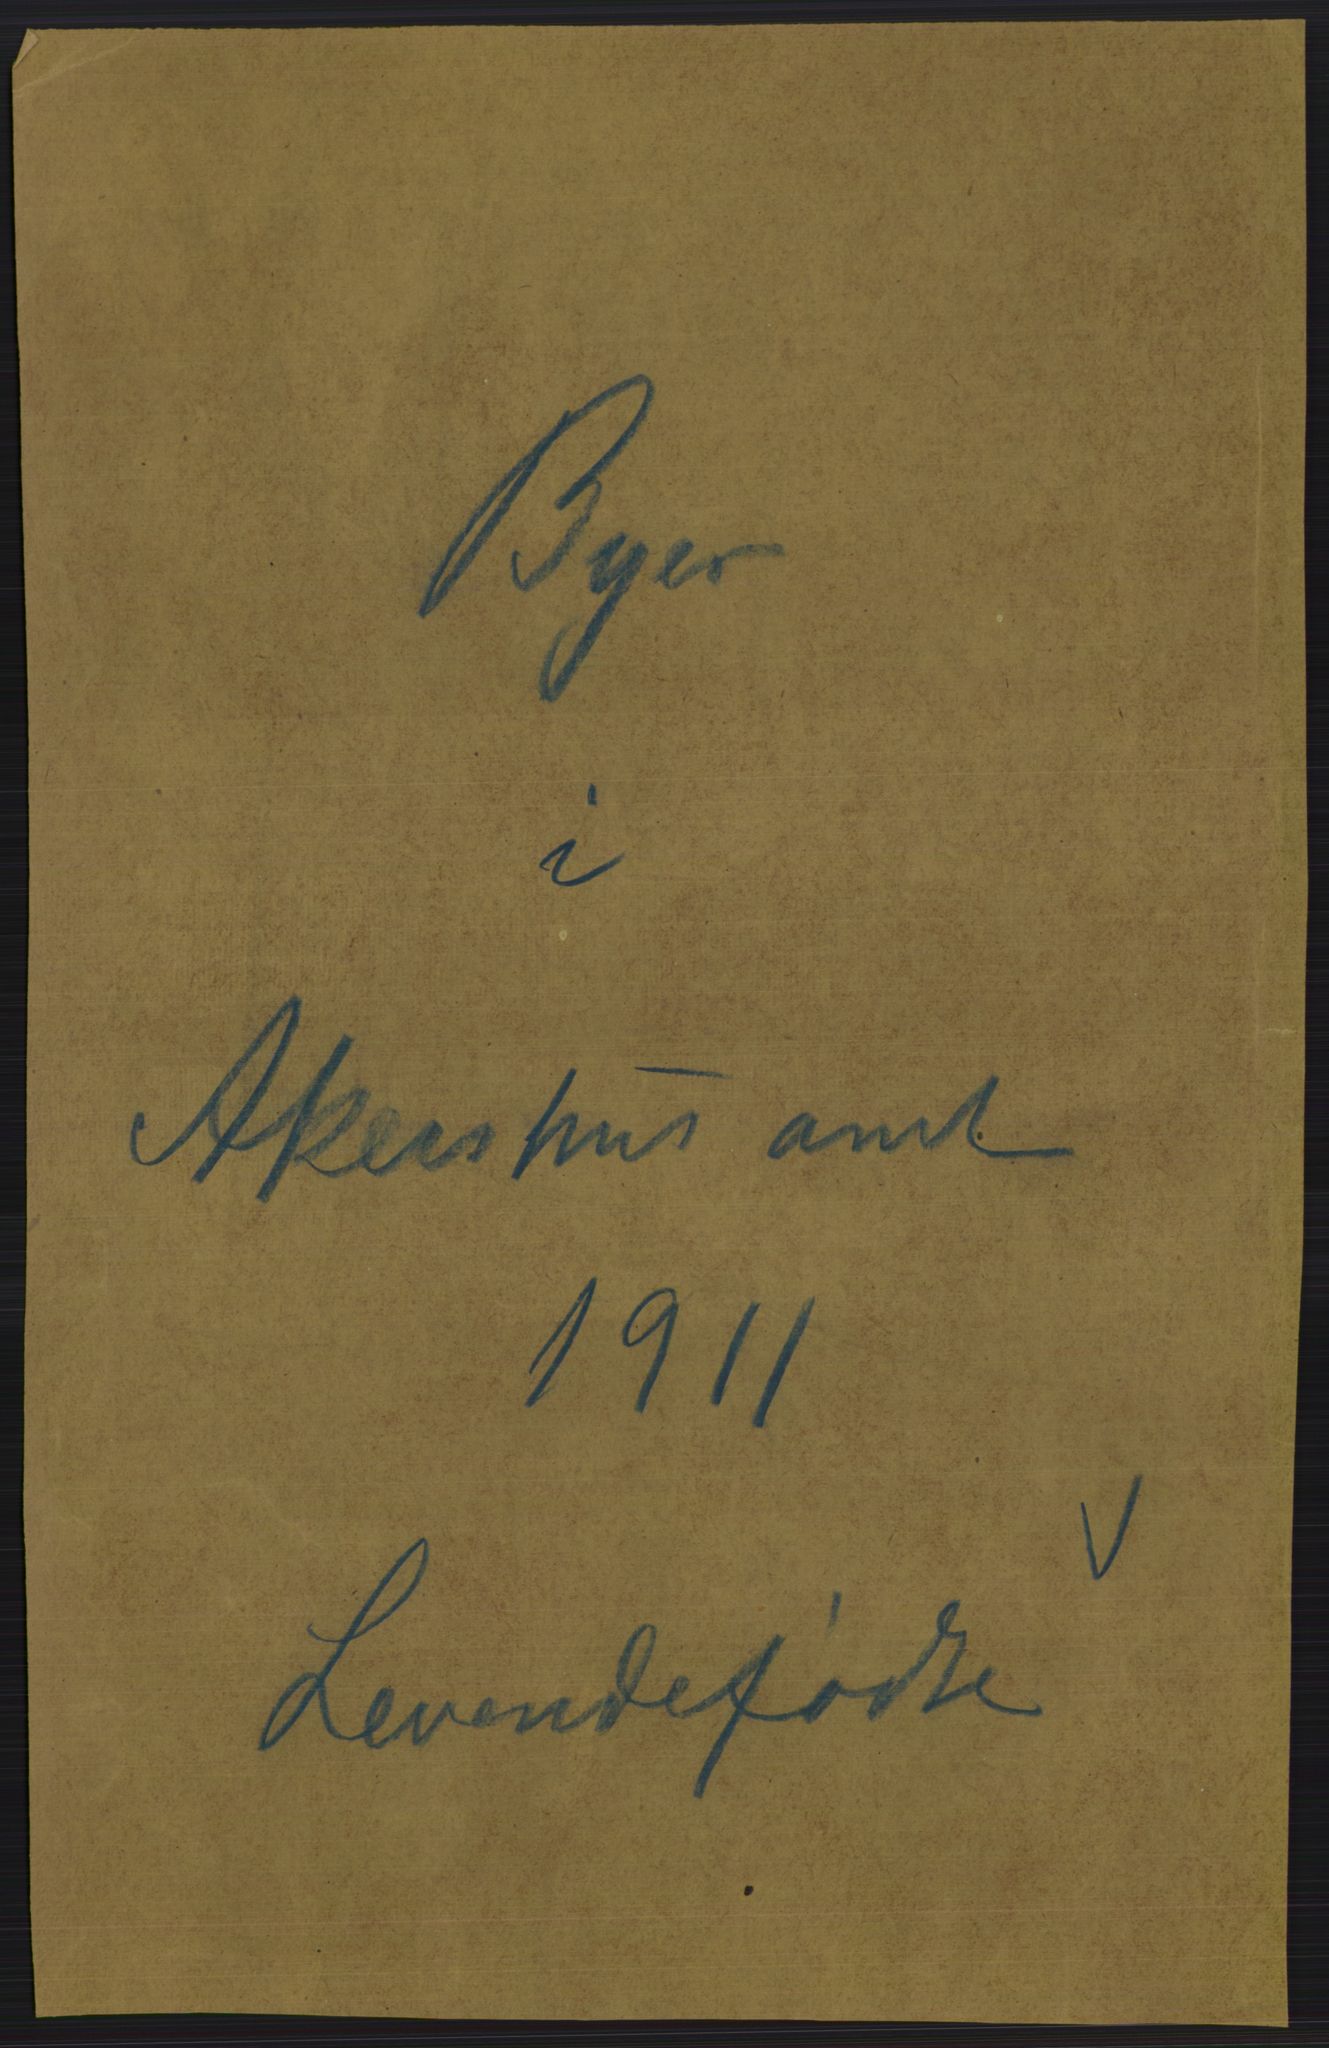 Byer
i
Akershus amt
1911
V
Levendefødte